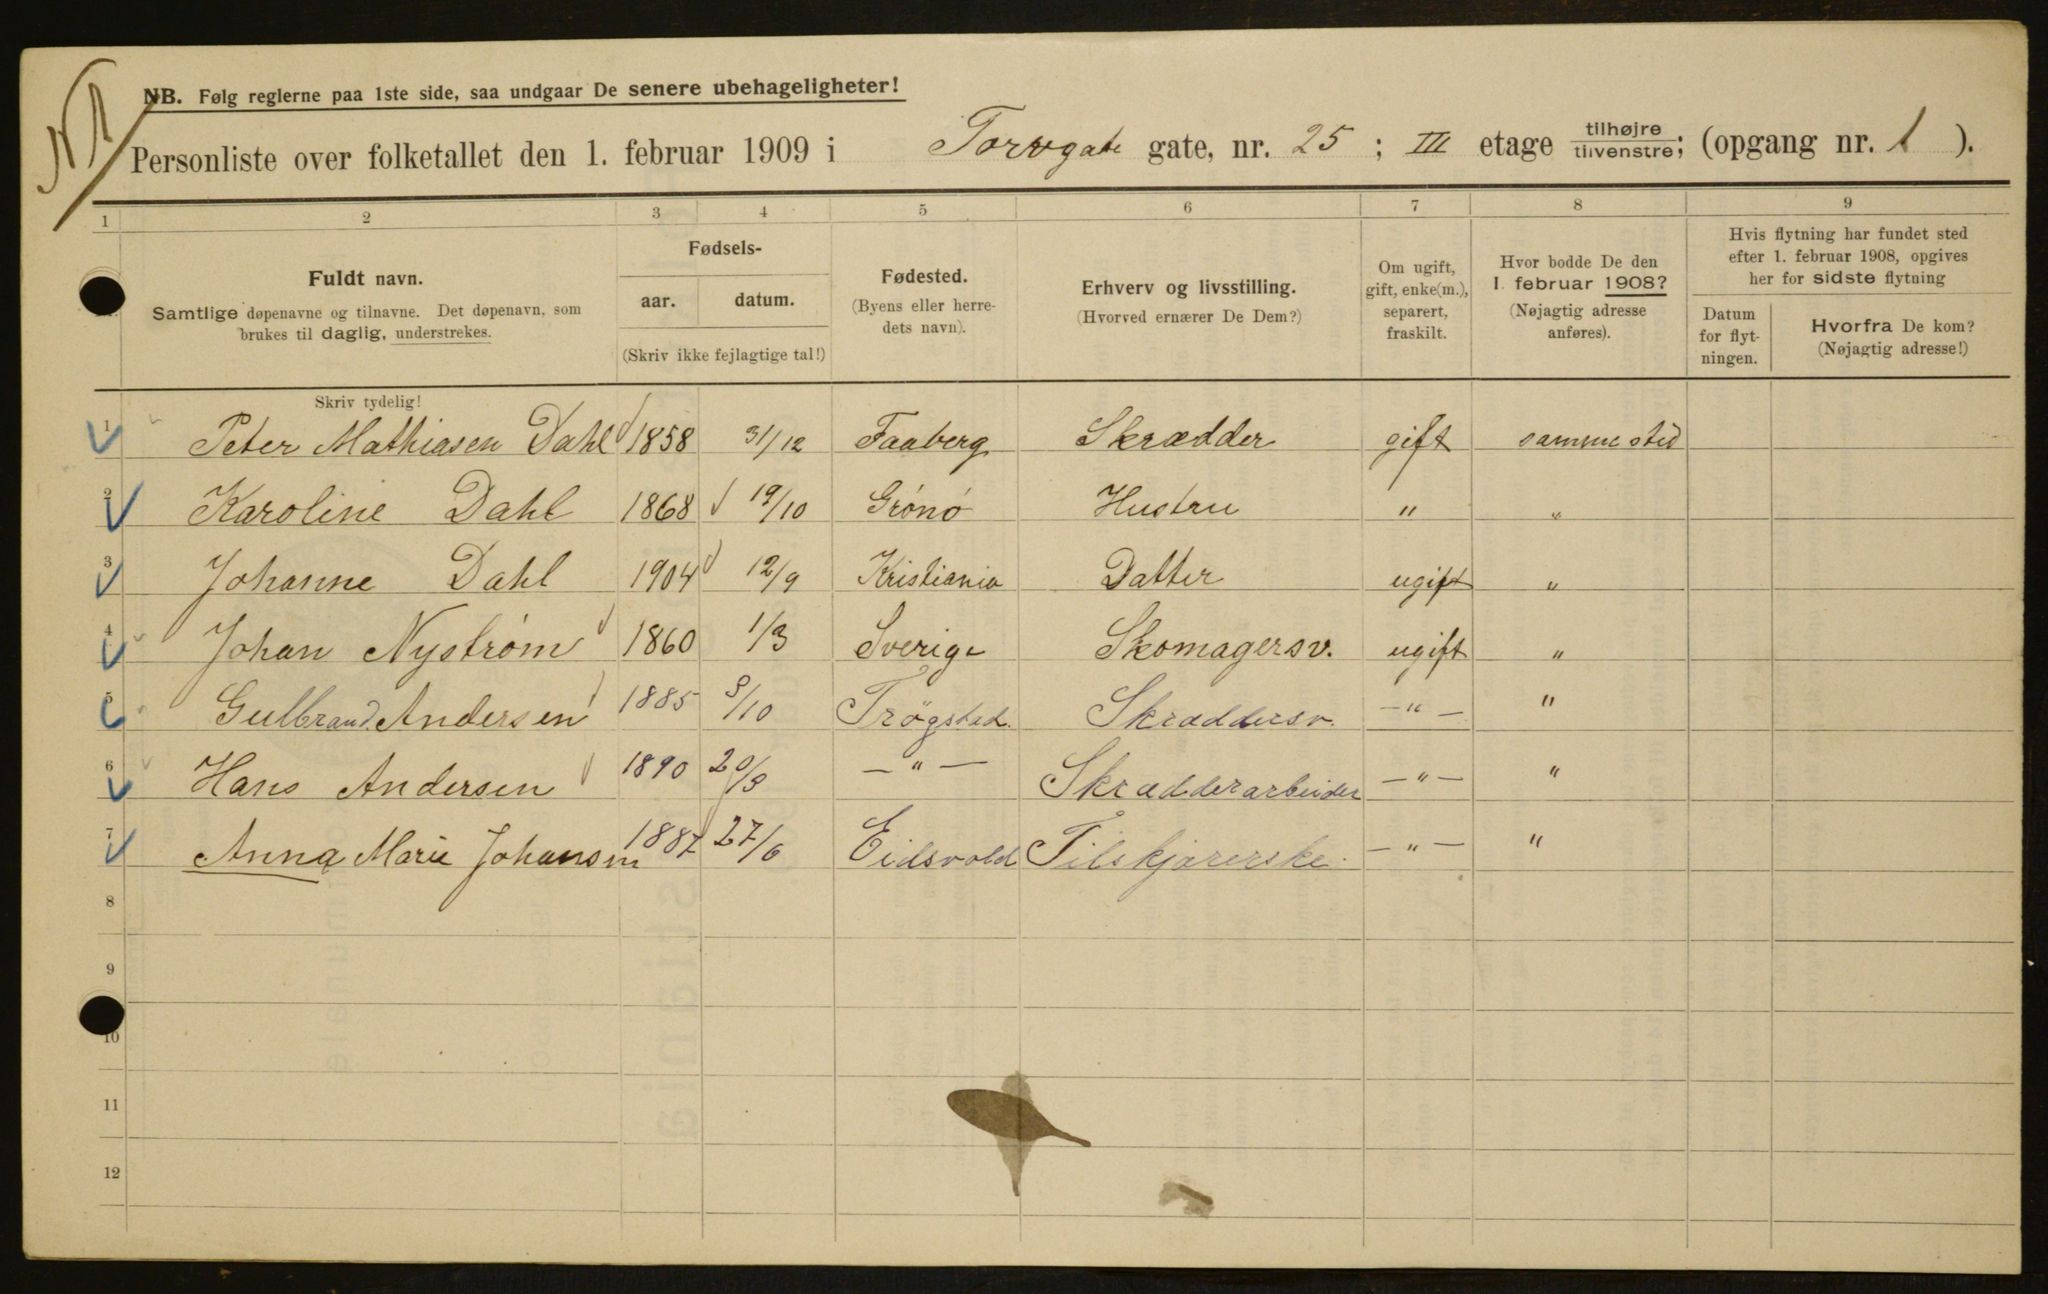 N1
NB. Følg reglerne paa 1ste side, saa undgaar De senere ubehageligheter!
Personliste over folketallet den 1. februar 1909 i Torvgate gate, nr. 25 ; III etage tilhøjre / tilvenstre; (opgang nr. 1 ).
1 2 3 4 5 6 7 8 9
Fuldt navn.
Samtlige døpenavne og tilnavne. Det døpenavn, som
brukes til daglig, understrekes.
Fødsels-
aar. datum.
(Skriv ikke fejlagtige tal!)
Fødested.
(Byens eller herre-
dets navn).
Erhverv og livsstilling.
(Hvorved ernærer De Dem?)
Om ugift,
gift, enke(m.),
separert,
fraskilt.
Hvor bodde De den
1. februar 1908?
(Nøjagtig adresse
anføres).
Hvis flytning har fundet sted
efter 1. februar 1908, opgives
her for sidste flytning
Datum
for flyt-
ningen.
Hvorfra De kom?
(Nøjagtig adresse!)
Skriv tydelig!
1 Peter Mathiasen Dahl 1858 31/12 Faaberg Skrædder gift samme sted
2 Karoline Dahl 1868 19/10 Grónó Hustru " "
3 Johanne Dahl 1904 12/9 Kristiania Datter ugift "
4 Johan Nystrøm 1860 1/3 Sverige Skomagersv. ugift "
5 Gulbrand Andersen 1885 8/10 Trøgstad. Skræddersv. -"- "
6 Hans Andersen 1890 20/3 -"- Skrædderarbeider -"- "
7 Anna Marie Johansen 1887 27/6 Eidsvold Tilskjærerske. -"- "
8
9
10
11
12